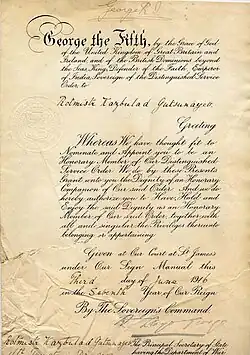 George R.I.
George the Fifth, by the Grace of God
of the United Kingdom of Great Britain and
Ireland and of the British Dominions beyond
the Seas King, Defender of the Faith, Emperor
of India, Sovereign of the Distinguished Service
Order to
Rotmistr Kazbulad
Greeting
Whereas We have thought fit to
Nominate and Appoint you to be an
Honorary Member of Our Distinguished
Service Order We do by these Presents
Grant unto you the Dignity of an Honorary
Companion of Our said Order And we do
hereby authorize you to Have Hold and
Enjoy the said Dignity as an Honorary
Member of Our said Order, together with
all and singular the Privileges thereunto
belonging or appertaining.
Given at Our Court at St. James's
under Our Sign Manual this
Third day of June 1916
in the Seventh Year of Our Reign
By The Sovereign's Command.
Rotmistr Kazbulad
The Principal Secretary of State
having the Department of War